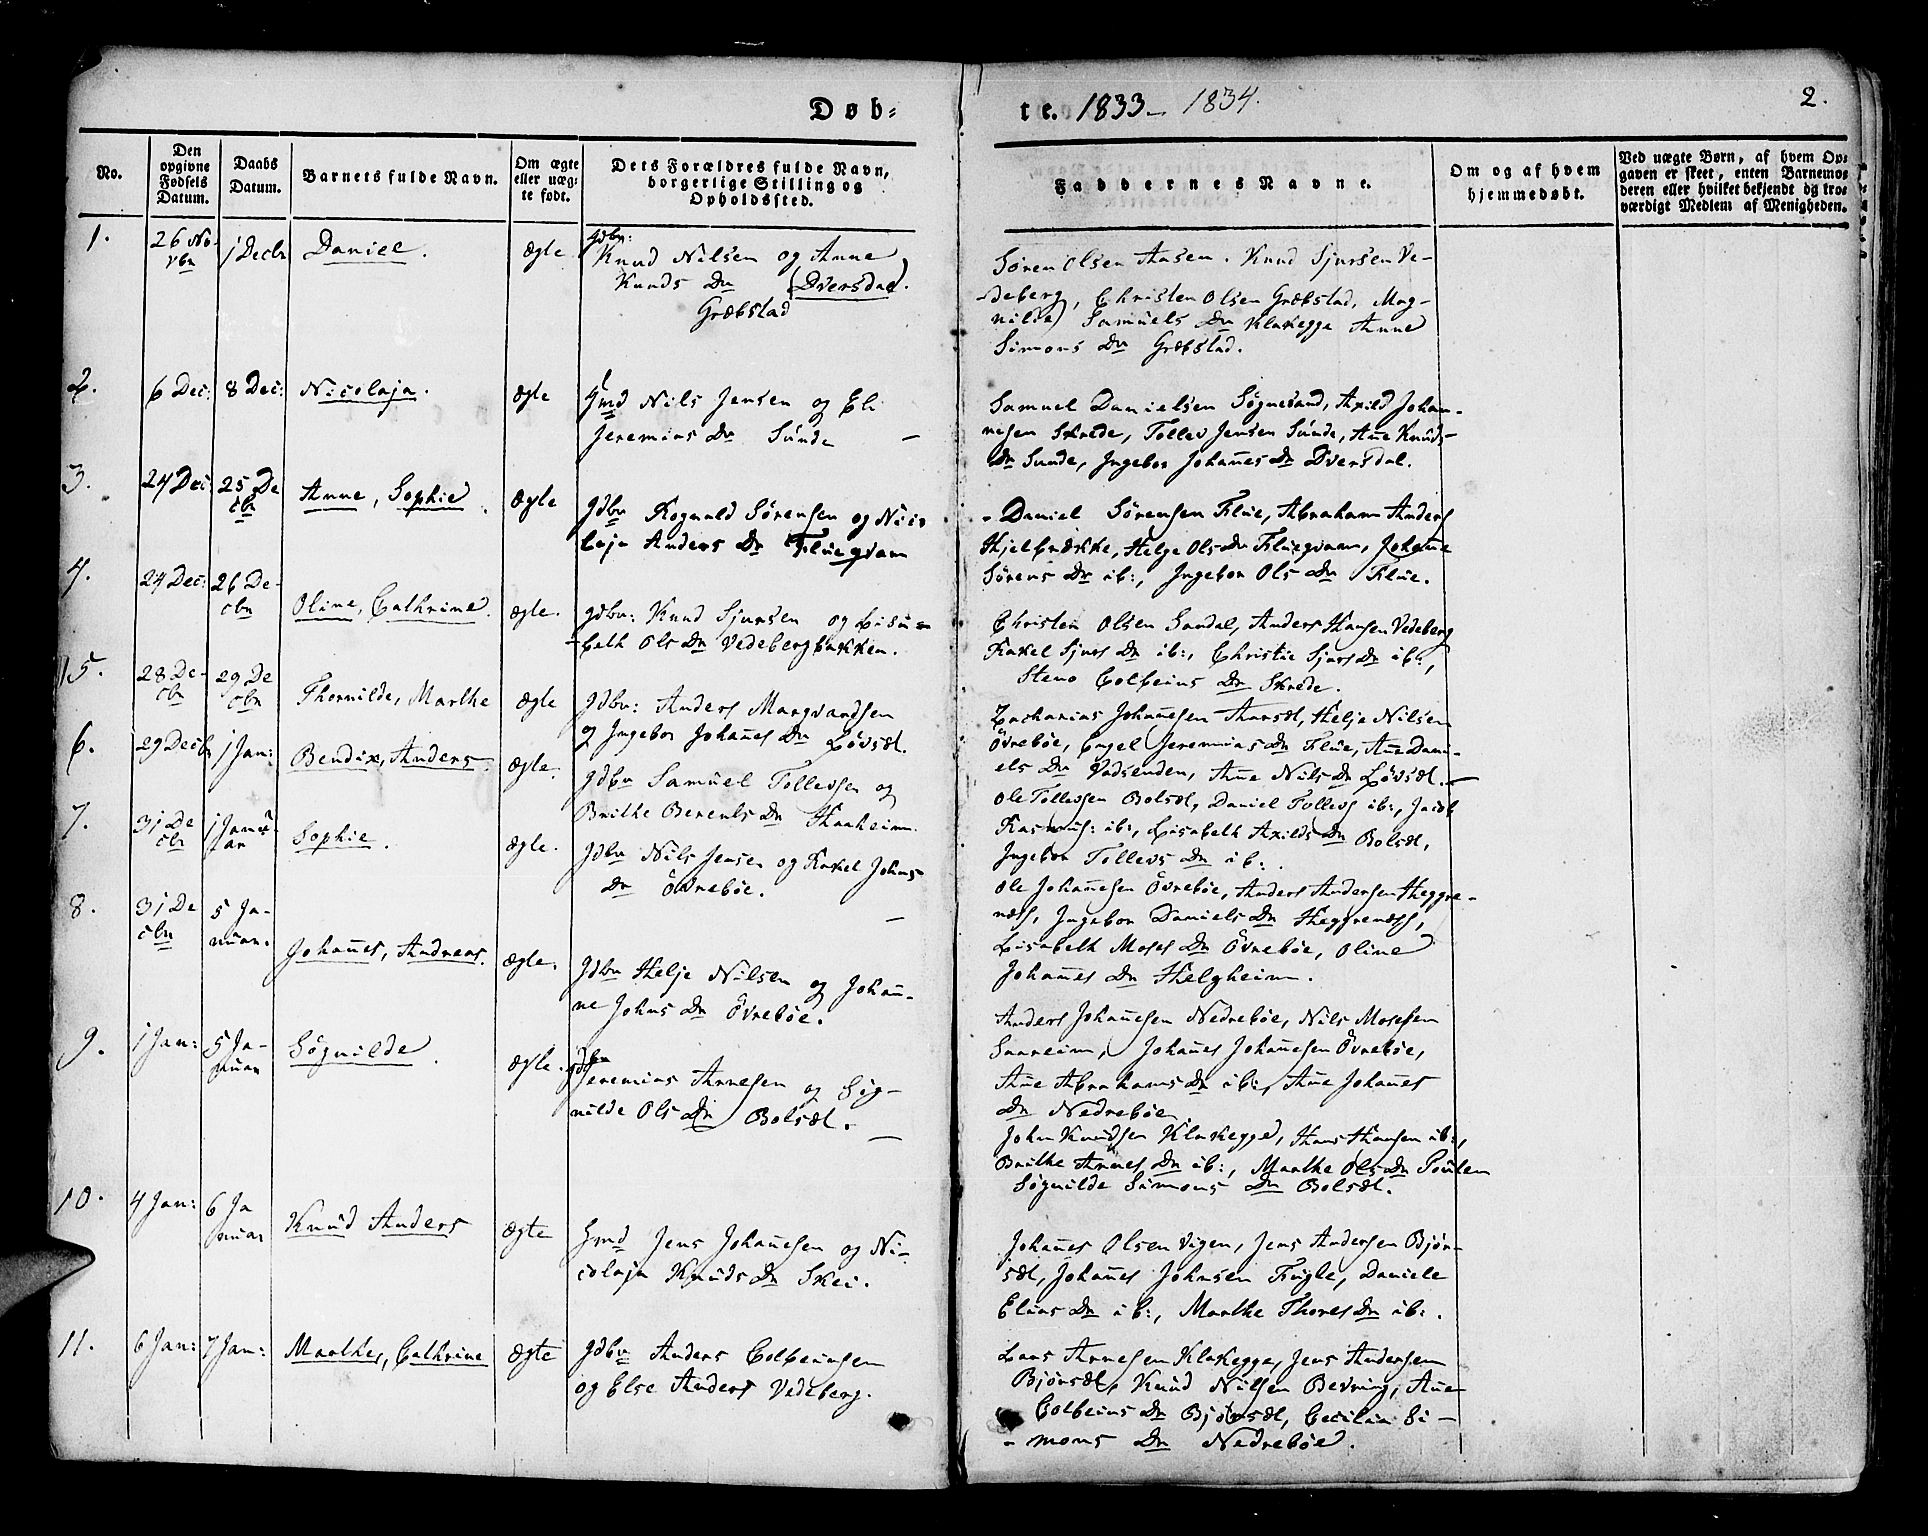 Døb-
te. 1833 - 1834.
2.
No.
Den opgivne Fødsels Datum.
Daabs Datum.
Barnets fulde Navn.
Om ægte eller uæg-te født.
Dets Forældres fulde Navn, borgerlige Stilling og Opholdssted.
Faddernes Navne.
Om og af hvem hjemmedøbt.
Ved uægte Børn, af hvem Op-
gaven er skeet, enten Barnemo-
deren eller hvilket bekjendt og tro-
værdigt Medlem af Menigheden.
1.
26 No-
vbr
1 Decbr
Daniel.
ægte
Gdbr:
Knud Nilsen og Anne
Knuds Dr (Dversdal).
Græbstad
Søren Olsen Aasen. Knud Sjursen Ve-
deberg, Christen Olsen Græbstad, Mag-
nilie Samuels Dr Klakegge Anne
Simons Dr Græbstad.
2.
6 Dec:
8 Dec:
Nicolaja.
ægte
Gmd Nils Jensen og Eli
Jeremias Dr Sunde
Samuel Danielsen Søgnesand, Axild Johan-
nesen Skrede, Tollev Jensen Sunde, Ane Knuds
Dr Sunde, Ingebor Johanes Dr Dversdal.
3.
24 Dec:
25 De
cbr
Anne, Sophie.
ægte
Gdbr Rognald Sørensen og Nico-
laja Anders Dr Flugvam
Daniel Sørensen Flue, Abraham Anders
Kjelbrække, Helge Ols Dr Fluegvam, Johane
Sørens Dr ib:, Ingebor Ols Dr Flue.
4.
24 Dec:
26 De-
cbr
Oline, Cathrine.
ægte.
Gdbr: Knud Sjursen og Lisa-
beth Ols Dr Vedebergbakken.
Christen Olsen Sandal, Anders Hansen Vedeberg
Rakel Sjurs Dr ib:, Christie Sjurs Dr ib:,
Steno Colbeins Dr Skrede.
5.
28 De-
cbr
29 De
cbr
Thornilde, Marthe
ægte
Gdbr: Anders Margvardsen
og Ingebor Johanes Dr Løvsæt.
Zacharias Johanesen Aarsæt, Helje Nilsen
Øvrebøe, Engel Jeremias Dr Flue, Ane Dani-
els Dr Vadsenden, Ane Nils Dr Løvsæt.
6.
29 Decb
1 Jan:
Bendix, Anders.
ægte.
Gdbr Samuel Tollevsen og
Brithe Berents Dr Skaaheim.
Ole Tollevsen Bolsæt, Daniel Tollevs ib:, Jacob
Rasmus: ib:, Lisabeth Axilds Dr Bolsæt,
Ingebor Tollevs Dr ib:.
7.
31 De
cbr
1 Janu-
ar
Sophie.
ægte.
Gdbr Nils Jensen og Rakel Johns
Dr Øvrebøe.
Ole Johanesen Øvrebøe, Anders Andersen Heggre-
næss, Ingebor Daniels Dr Heggrenæss,
Lisabeth Moses Dr Øvrebøe, Oline
Johanes Dr Helgheim.
8.
31 De
cbr
5 Ja-
nuar.
Johanes, Andreas.
ægte.
Gdbr Helje Nilsen og Johan-
ne Johns Dr Øvrebøe.
Anders Johanesen Nedrebøe, Nils Mosesen
Saareim, Johanes Johanesen Øvrebøe,
Ane Abrahams Dr ib:, Ane Johanes
Dr Nedrebøe.
9.
1 Jan:
5 Ja-
nuar
Søgnilde.
ægte.
Gdbr
Jeremias Arnesen og Søg-
nilde Ols Dr Bolsæt.
John Knudsen Klakegge, Hans Hansen ib:,
Brithe Arnes Dr ib:, Marthe Ols Dr
Søgnilde Simons Dr Bolsæt.
10.
4 Jan:
6 Ja
nuar
Knud Anders
ægte
Gmd Jens Johanesen og Ni-
colaja Knuds Dr Skei.
Johanes Olsen Vigen, Jens Andersen Bjør-
sæt, Johanes Johnsen Fugle, Daniele
Elias Dr ib:, Marthe Thores Dr ib:.
11.
6 Jan:
7 Jan:
Marthe, Cathrine
ægte
Gdbr Anders Colbeinsen
og Else Anders Vedeberg.
Lars Arnesen Klakegge, Jens Andersen
Bjørsæt, Knud Nilsen Bevring, Ane
Colbeins Dr Bjørsæt, Cecilia Si-
mons Dr Nedrebøe.